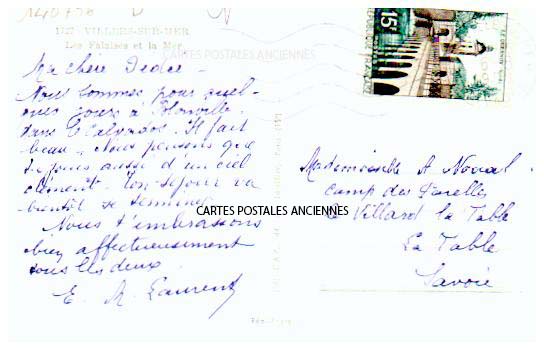 140778
VILLERS-SUR-MER
Les Falaises et la Mer
CARTES POSTALES ANCIENNES
Ma chère Dédée -
Nous sommes pour quel-
ques jours à Blonville
dans le Calvados. Il fait
beau. Nous pensons que
tu jouis aussi d'un ciel
clément. Ton séjour va
bientôt se terminer
CARTES POSTALES ANCIENNES
Nous t'embrassons
bien affectueusement
tous les deux.
Laurent
15
Mademoiselle A Noval
Camp des
Le Villard la Table
La Table
Savoie